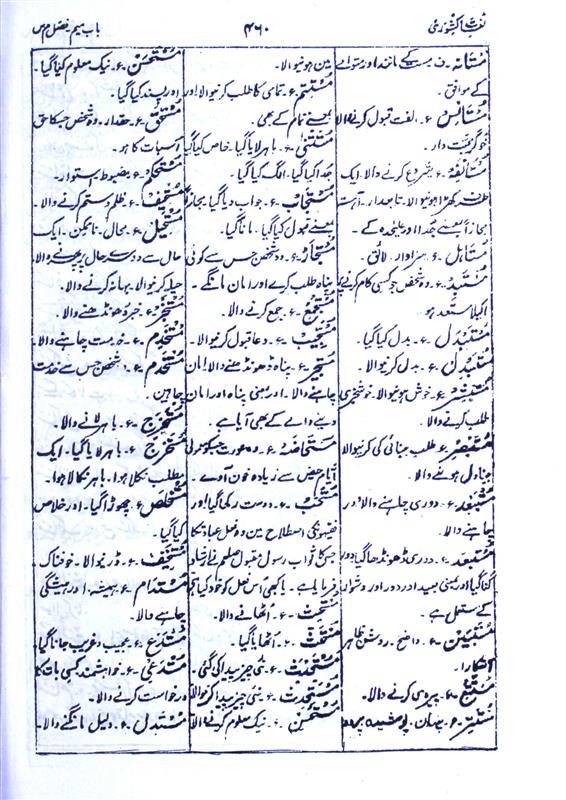 لغت کشوری
۴۶۰
باب میم فصل س
مستانہ۔ ف۔ مست کے مانند اور متوالے
کے موافق۔
مستانس۔ ع۔ الفت قبول کرنے والا
خوگر
مستانفہ۔ ع۔ شروع کرنے والا۔ ایک
طرف کھڑا ہونیوالا۔ تابعدار۔
مجازاً بمعنے جدا اور علیٰحدہ کے۔
مستاہل۔ ع۔ سزاوار۔ لائق۔
مستبد۔ ع۔ وہ شخص جو کسی کام کرنے پر
اکیلا مستعد ہو
مستبدل۔ ع۔ بدل کیا گیا۔
مستبدل۔ ع۔ بدل کرنیوالا۔
مستبشر۔ ع۔ خوش ہونیوالا۔ خوشخبری
طلب کرنے والا۔
مستبصر۔ ع۔ طلب بینائی کی کرنیوالا
بینا دل ہونے والا۔
مستبعد۔ ع۔ دوری چاہنے والا۔ دور
چاہنے والا۔
مستبعد۔ ع۔ دوری ڈھونڈھا گیا۔ دور
گنا گیا۔ اور بمعنی بعید اور دور اور دشوار
کے مستعمل ہے۔
مستبین۔ ع۔ واضح۔ روشن ظاہر
آشکارا۔
مستتبع۔ ع۔ پیروی کرنے والا۔
مستتر۔ ع۔ پنہان۔ پوشیدہ پردہ
مین ہونیوالا۔
مستتم۔ ع۔ تمامی کا طلب کرنیوالا۔ اور
بمعنے تمام کے بھی۔
مستثنیٰ۔ ع۔ باہر لایا گیا۔ خاص کیا گیا
جدا کیا گیا۔ الگ کیا گیا۔
مستجاب۔ ع۔ جواب دیا گیا۔ مجازاً
بمعنے قبول کیا گیا۔ مانا گیا۔
مستجار۔ ع۔ وہ شخص جس سے کوئی
پناہ طلب کرے اور امان مانگے۔
مستجمع۔ ع۔ جمع کرنے والا۔
مستجیب۔ ع۔ دعا قبول کرنیوالا۔
مستجیر۔ ع۔ پناہ ڈھونڈھنے والا۔ امان
چاہنے والا۔ اور بمعنی پناہ اور امان
دینے والے کے بھی آیا ہے۔
مستحاضہ۔ ع۔ وہ عورت جسکو سوائے
ایام حیض سے زیادہ خون آوے۔
مستحب۔ ع۔ دوست رکھا گیا۔ اور
فقیہونکی اصطلاح مین وہ فعل عبادتکا
جسکا ثواب رسول مقبول صلعم نے ارشاد
فرمایا ہے۔ یا کبھی اُس فعل کو خود کیا ہو
مستحث۔ ع۔ اُٹھانے والا۔
مستحث۔ ع۔ اُٹھایا گیا۔
مستحدث۔ ع۔ نئی چیز پیدا کی گئی۔
مستحدث۔ ع۔ نئی چیز پیدا کرنیوالا
مستحسن۔ ع۔ نیک معلوم کرنے والا
مستحسن۔ ع۔ نیک معلوم کیا گیا۔
اور پسند کیا گیا۔
مستحق۔ ع۔ حقدار۔ وہ شخص جسکا حق
اُس بات کا ہو۔
مستحکم۔ ع۔ مضبوط۔ استوار۔
ع۔ ظلم و ستم کرنے والا۔
مستحیل۔ ع۔ محال۔ ناممکن۔ ایک
حال سے دوسرے حال پر پھرنے والا
حیلہ کرنیوالا۔ بہانہ کرنے والا۔
مستخبر۔ ع۔ خبر ڈھونڈھنے والا۔
مستخدم۔ ع۔ خدمت چاہنے والا۔
مستخدم۔ ع۔ وہ شخص جس سے خدمت
چاہین۔
مستخرج۔ ع۔ باہر لانے والا۔
مستخرج۔ ع۔ باہر لایا گیا۔ ایک
مطلب نکلا ہوا۔ باہر نکالا ہوا۔
مستخلص۔ ع۔ چھوڑا گیا۔ اور خلاص
کیا گیا۔
مستخیف۔ ع۔ ڈرنیوالا۔ خوفناک
مستدام۔ ع۔ ہمیشہ۔ اور ہمیشگی
چاہنے والا۔
ع۔ عجیب و غریب جانا گیا
مستدعی۔ ع۔ خواہشمند کسی بات کا
درخواست کرنے والا۔
مستدل۔ ع۔ دلیل مانگنے والا۔